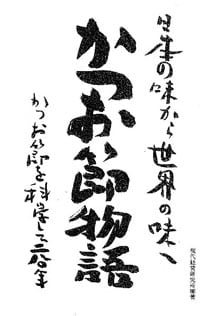 日本の味から世界の味へ
かつお節物語
かつお節を科学して二八〇年
現代経営研究会編著